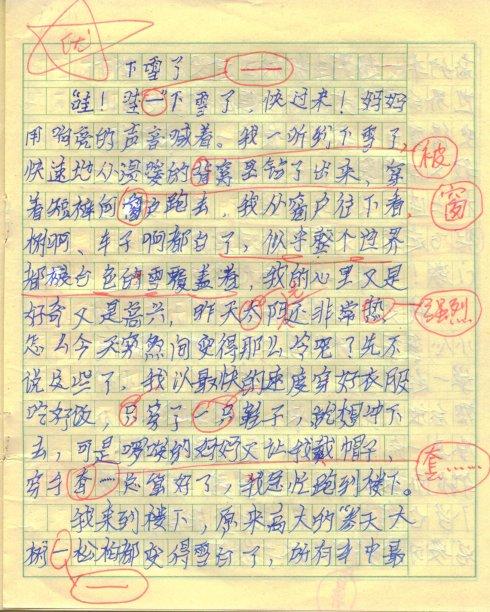 优
下雪了 ——
“哇！哇—”下雪了，快过来！妈妈
用响亮的声音喊着。我一听到下雪了，
快速地从温暖的窝里钻了出来，穿
被
着短裤向窗户跑去，我从窗户往下看，
窗
树啊、车子啊都白了，似乎整个世界
都被白色的雪覆盖着，我的心里又是
好奇又是高兴，昨天太阳还非常热
强烈
怎么今天突然间变得那么冷呢？先不
说这些了，我以最快的速度穿好衣服
吃好饭，只穿了一只鞋子，就想冲下
去，可是啰嗦的妈妈又让我戴帽子，
穿手套……总算好了，我急忙跑到楼下。
套……
我来到楼下，原来高大的“参天大
树—松柏都变得雪白了，所有车中最
——